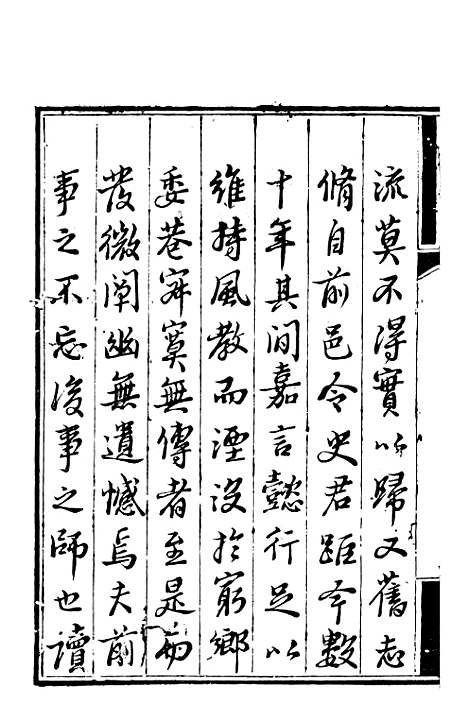 流莫不得實以歸又舊志
脩自前邑令史君距今數
十年其间嘉言懿行足以
維持風教而湮没於窮鄉
委巷寂寞無傳者至是而
發微闡幽無遺憾焉夫前
事之不忘後事之師也讀